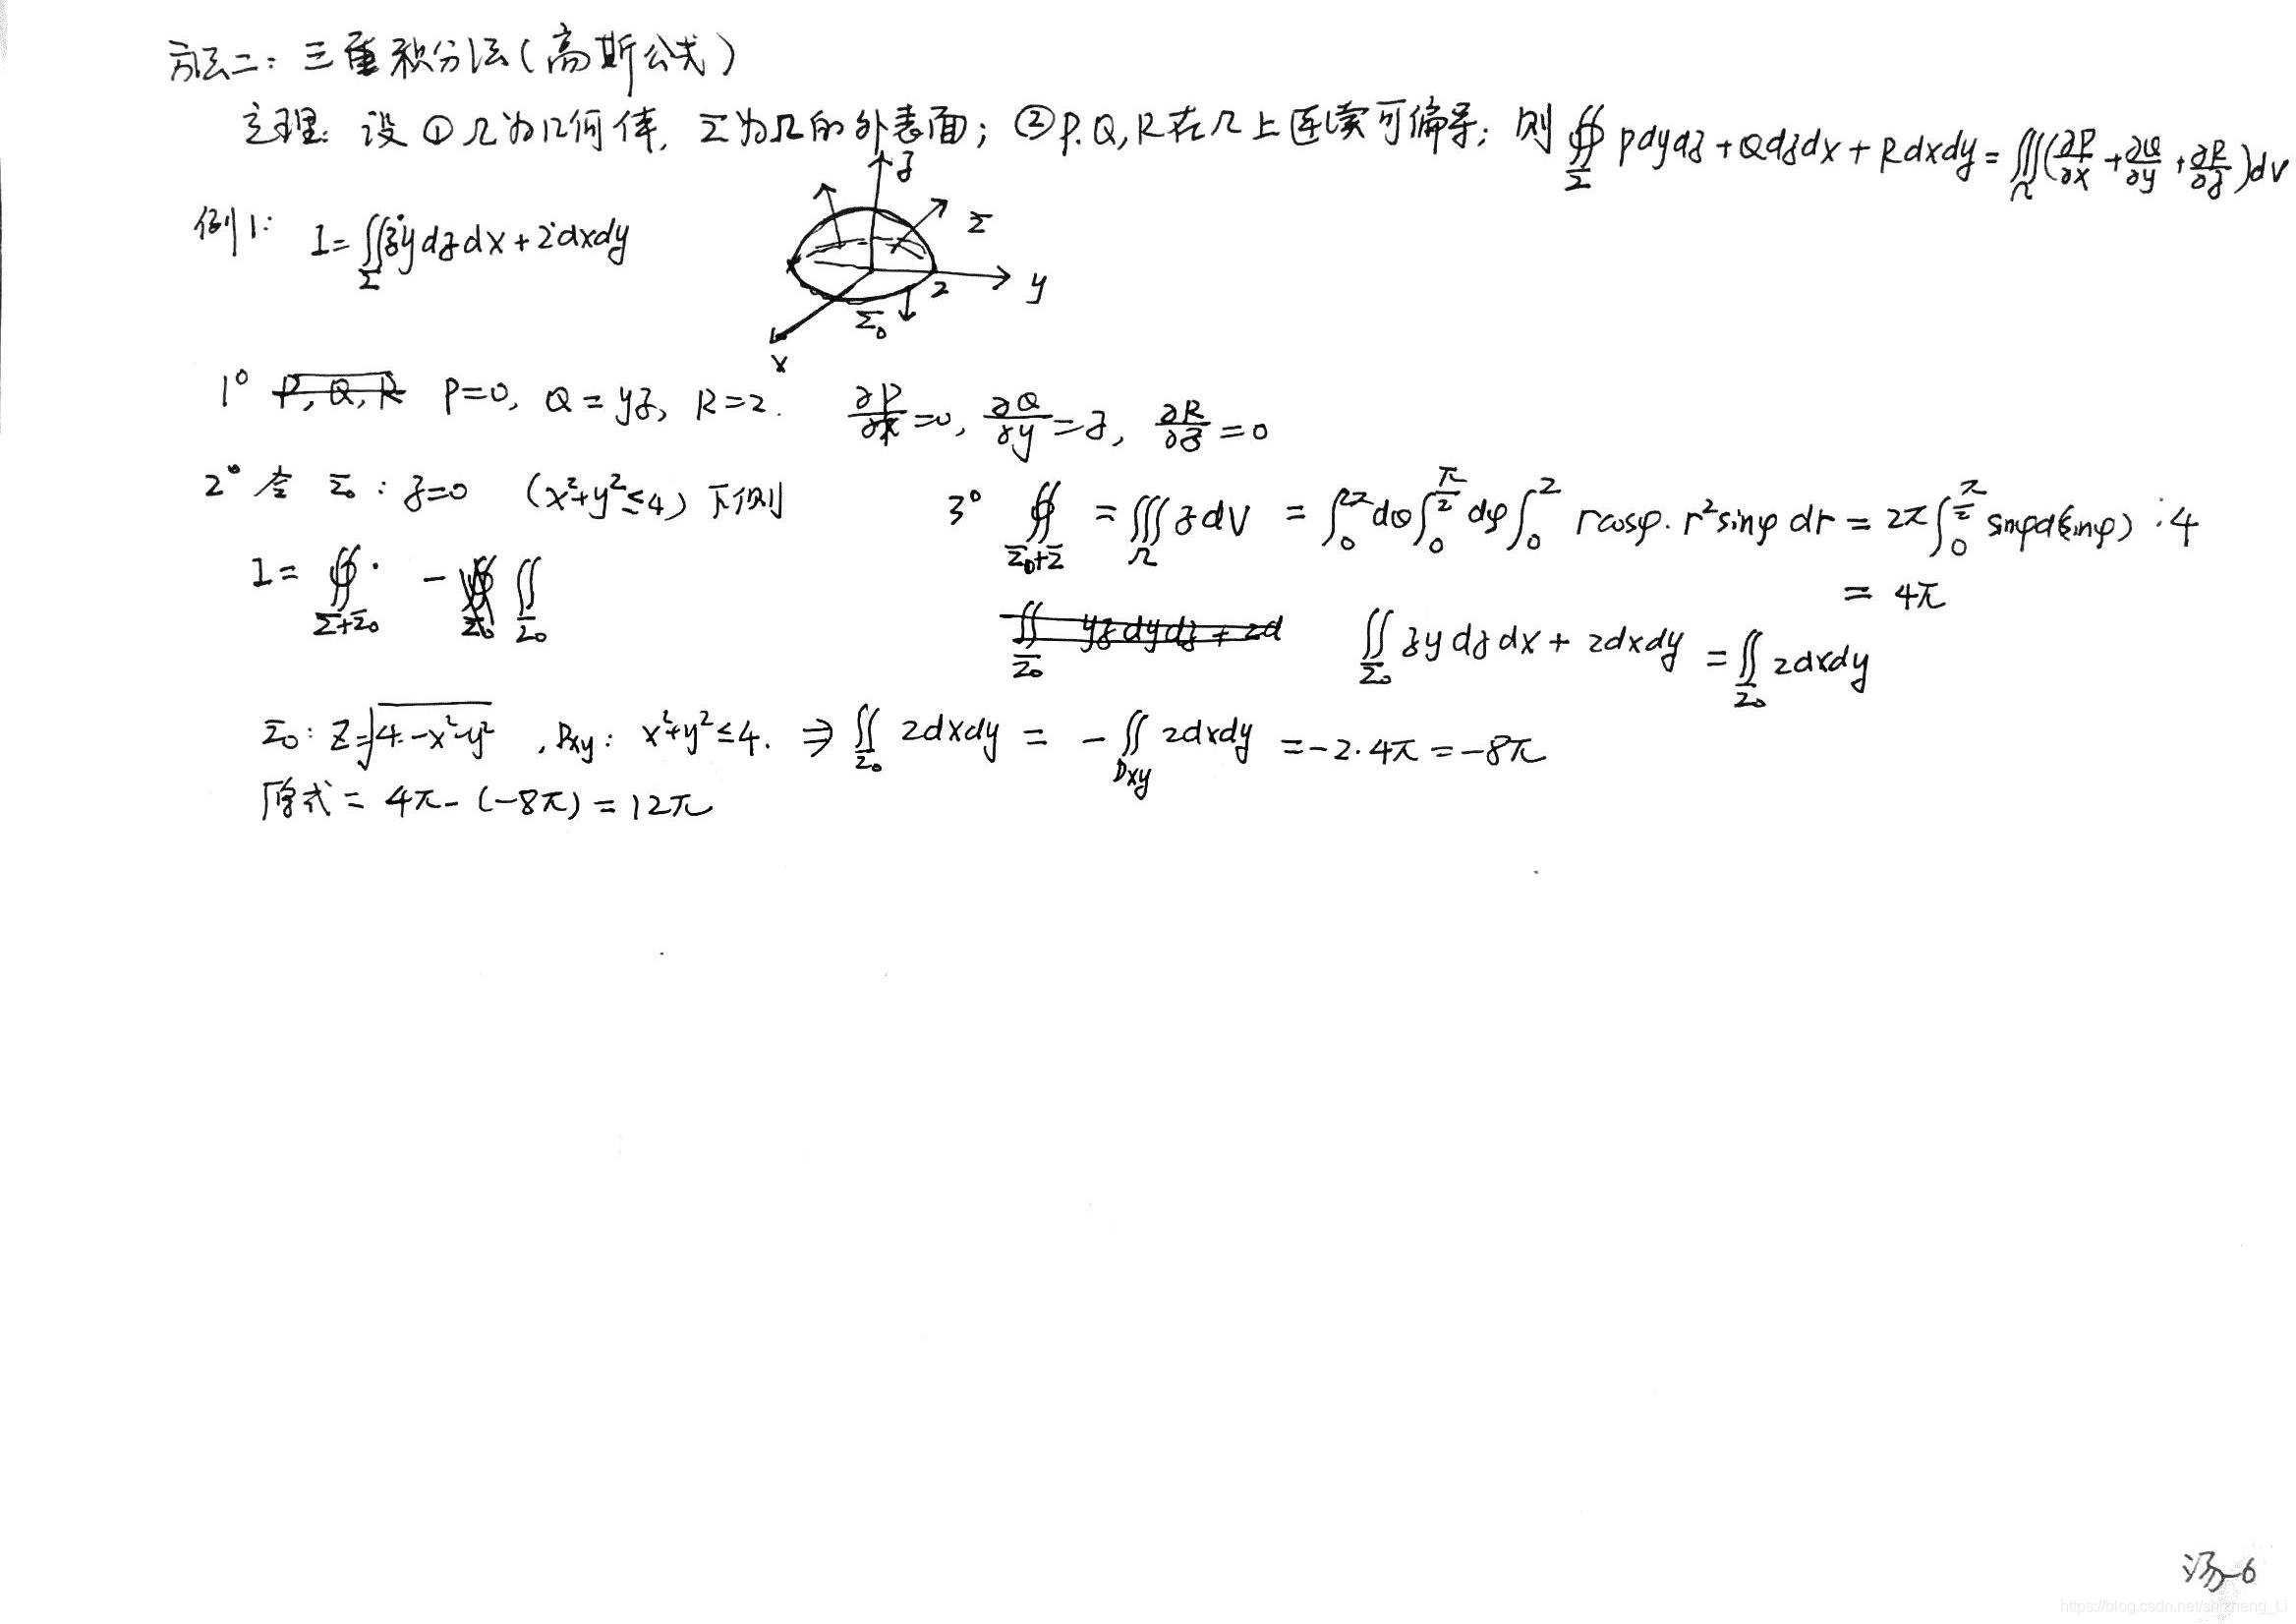 方法二：三重积分法（高斯公式）
定理：设 ①Ω为几何体，Σ为Ω的外表面；②P,Q,R在Ω上连续可偏导；则 ∯_Σ Pdydz+Qdzdx+Rdxdy=∭_Ω(∂P/∂x+∂Q/∂y+∂R/∂z)dv
例1： I=∬_Σ zydzdx+2dxdy
z
Σ
y
2
Σ₀
x
1° P=0, Q=yz, R=2. ∂P/∂x=0, ∂Q/∂y=z, ∂R/∂z=0
2° 令 Σ₀：z=0 (x²+y²≤4) 下侧
I= ∯_{Σ+Σ₀} - ∬_{Σ₀}
3° ∯_{Σ₀+Σ} = ∭_Ω zdV = ∫₀^{2π}dθ∫₀^{π/2}dφ∫₀² rcosφ·r²sinφ dr = 2π∫₀^{π/2} sinφd(sinφ)·4
= 4π
∬_{Σ₀} yzdydz+2d
∬_{Σ₀} zydzdx+2dxdy = ∬_{Σ₀} 2dxdy
Σ₀: Z=√(4-x²-y²), Dxy: x²+y²≤4. ⇒ ∬_{Σ₀} 2dxdy = -∬_{Dxy} 2dxdy = -2·4π = -8π
原式 = 4π-(-8π) = 12π
汤-6
https://blog.csdn.net/shizheng_Li